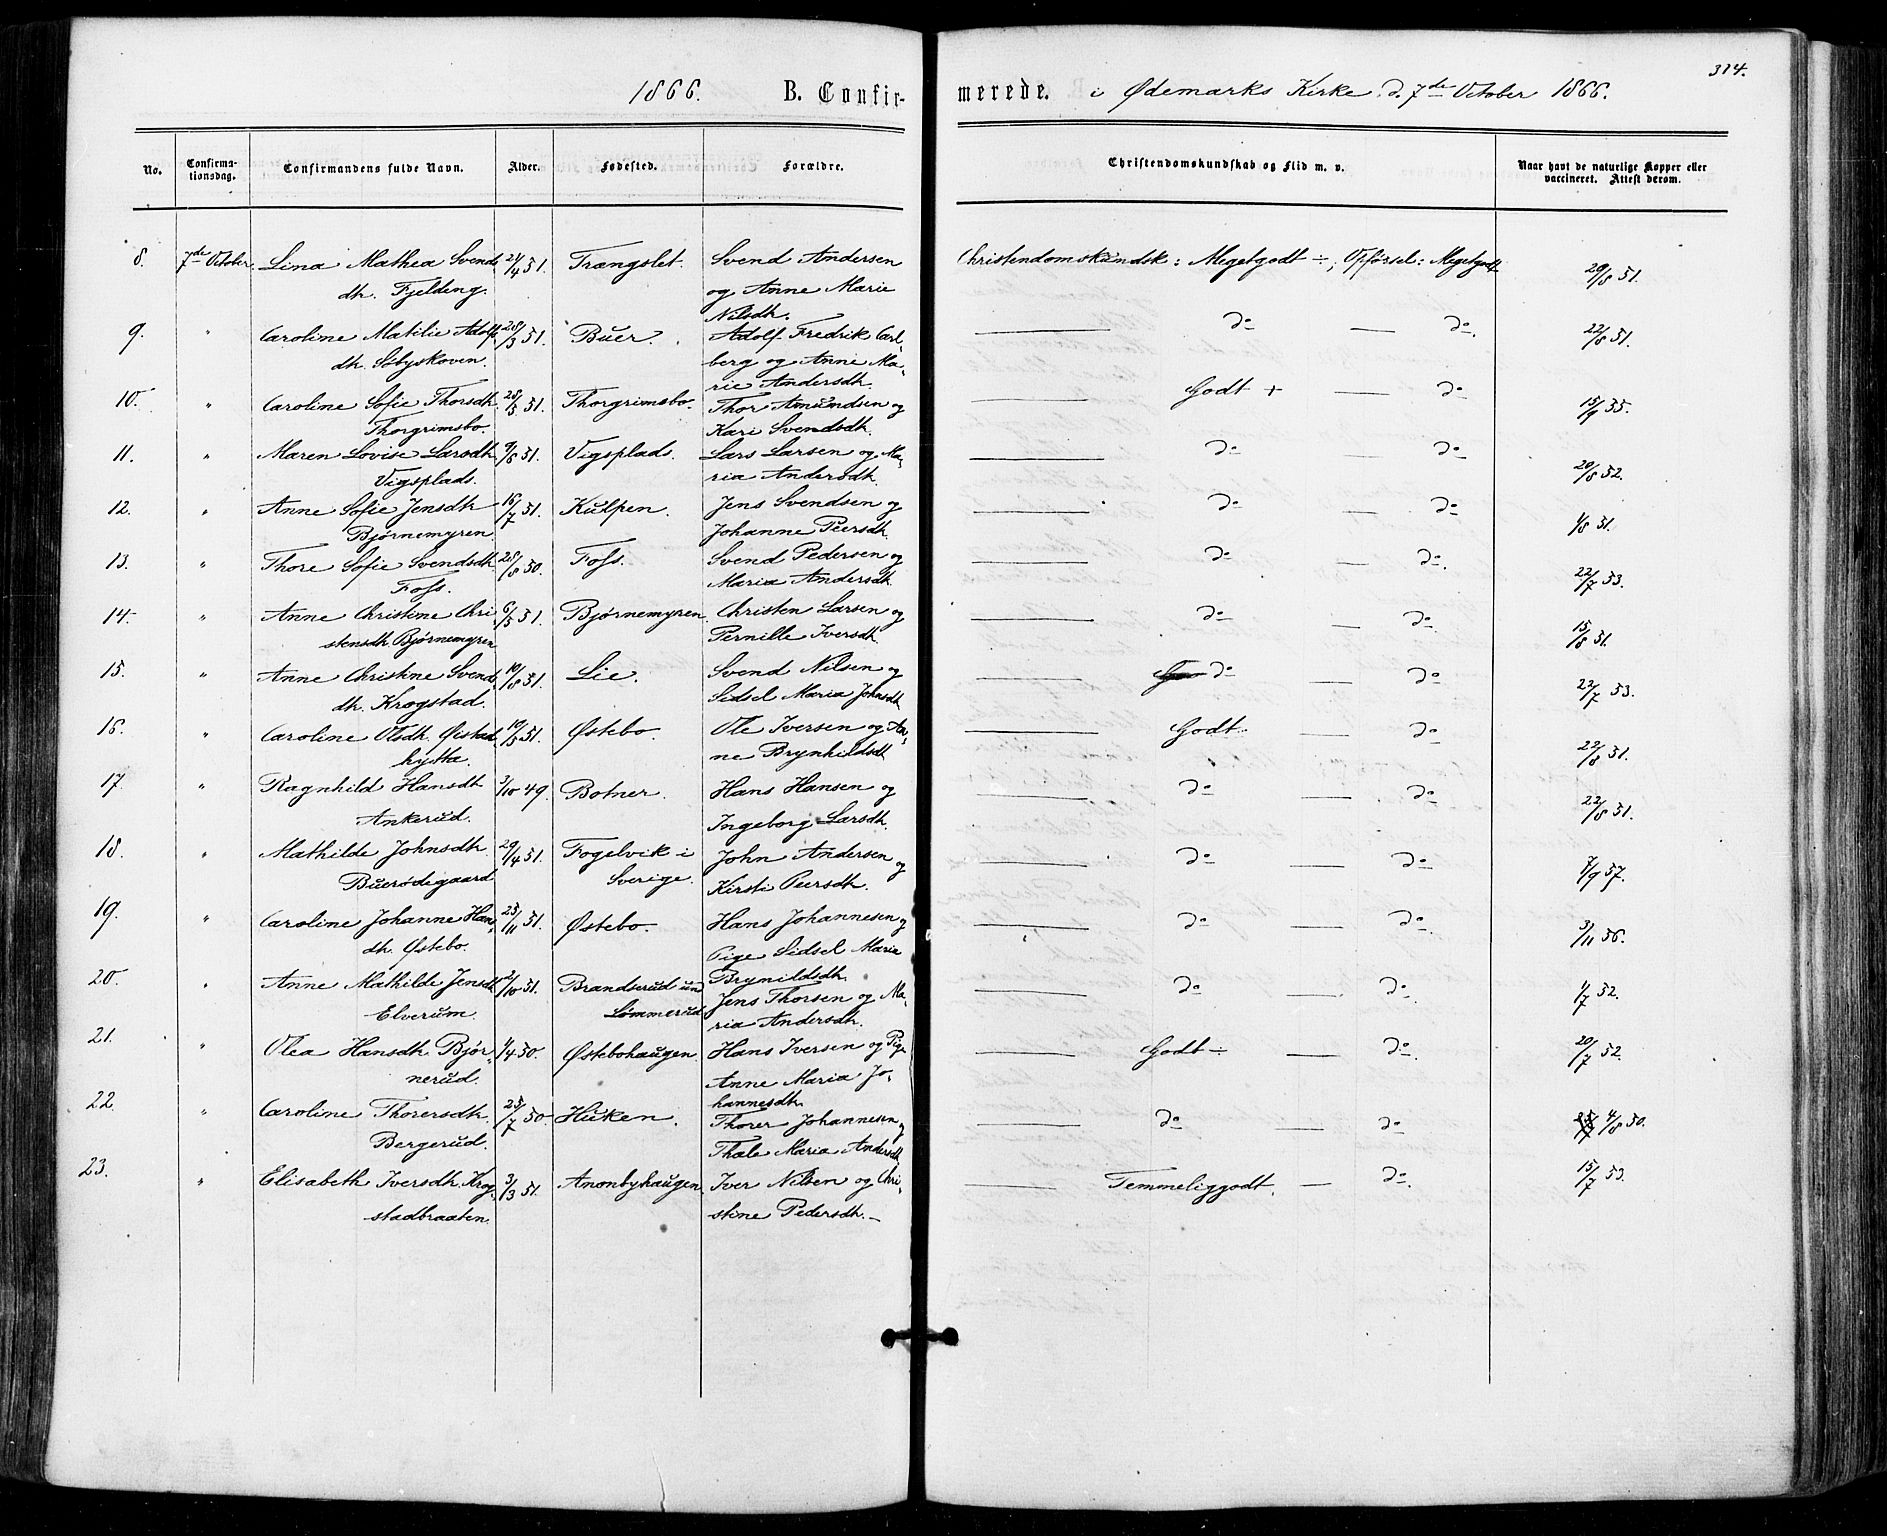 314.
1866. B. Confirmerede. i Ødemarks Kirke d. 7de October 1866.
No. | Confirmationsdag. | Confirmandens fulde Navn. | Alder. | Fødested. | Forældre. | Christendomskundskab og Flid m. v. | Naar havt de naturlige Kopper eller vaccineret. Attest derom.
8. | 7de October. | Lina Mathea Svends | 24/4 51. | Trængslet. | Svend Andersen | Christendomskundsk: Megetgodt ÷; Opførsel: Megetgodt | 29/8 51.
dh. Fjelding. | og Anne Marie
Nilsdh.
9. | " | Caroline Matilie Adolfs | 28/3 51. | Buer. | Adolf Fredrik Carl- | — do — do | 22/8 51.
dh. Sibyskoven. | berg og Anne Ma-
rie Andersdh.
10. | " | Caroline Sofie Thorsdh. | 28/5 51. | Thorgrimsbo. | Thor Amundsen og | — Godt + — do | 15/9 55.
Thorgrimsbo. | Kari Svendsdh.
11. | " | Maren Lovise Larsdh. | 9/6 51. | Vigsplads. | Lars Larsen og Ma- | — do — do | 20/8 52.
Vigsplads. | ria Andersdh.
12. | " | Anne Sofie Jensdh. | 16/7 51. | Kulpen. | Jens Svendsen og | — do — do | 1/8 51.
Bjørnemyren. | Johanne Peersdh.
13. | " | Thore Sofie Svendsdh. | 28/8 50. | Foss. | Svend Pedersen og | — do — do. | 22/7 53.
Foss. | Maria Andersdh.
14. | " | Anne Christine Chri- | 6/5 51. | Bjørnemyren. | Christen Larsen og | — do — do. | 15/8 51.
stensdh. Bjørnemyren | Pernille Iversdh.
15. | " | Anne Christine Svends | 10/8 51. | Lie. | Svend Nilsen og | — do — do | 22/7 53.
dh. Krogstad. | Sidsel Maria Johnsdh.
16. | " | Caroline Olsdh. Øistad | 10/5 51. | Østebo. | Ole Iversen og An- | — Godt. — do | 22/8 51.
hytta. | ne Brynhildsdh.
17. | " | Ragnhild Hansdh. | 3/10 49. | Botner. | Hans Hansen og | — do — do. | 22/8 51.
Ankerud. | Ingeborg Larsdh.
18. | " | Mathilde Johnsdh. | 29/4 51. | Fogelvik i | John Andersen og | — do — do | 7/9 57.
Buerødegaard | Sverige. | Kirsti Peersdh.
19. | " | Caroline Johanne Hans | 25/11 51. | Østebo. | Hans Johannesen og | — do — do | 3/11 56.
dh. Østebo. | Pige Sidsel Maria
Brynildsdh.
20. | " | Anne Mathilde Jensdh. | 2/10 51. | Brandserud und | Jens Thorsen og Ma- | — do — do. | 1/7 52.
Elverum. | Lømmerud | ria Andersdh.
21. | " | Olea Hansdh. Bjør- | 1/4 50. | Østebohaugen. | Hans Iversen og Pige | — Godt ÷ — do. | 20/7 52.
nerud. | Anne Maria Jo-
hannesdh.
22. | " | Caroline Thorersdh. | 25/7 50. | Huken. | Thorer Johannesen og | — do — do | 4/8 50.
Bergerud. | Thale Maria Andersdh.
23. | " | Elisabeth Iversdh. Krog- | 3/3 51. | Anonbyhaugen. | Iver Nilsen og Chri- | — Temmeliggodt. — do. | 15/7 53.
stadbraaten. | stine Pedersdh. —